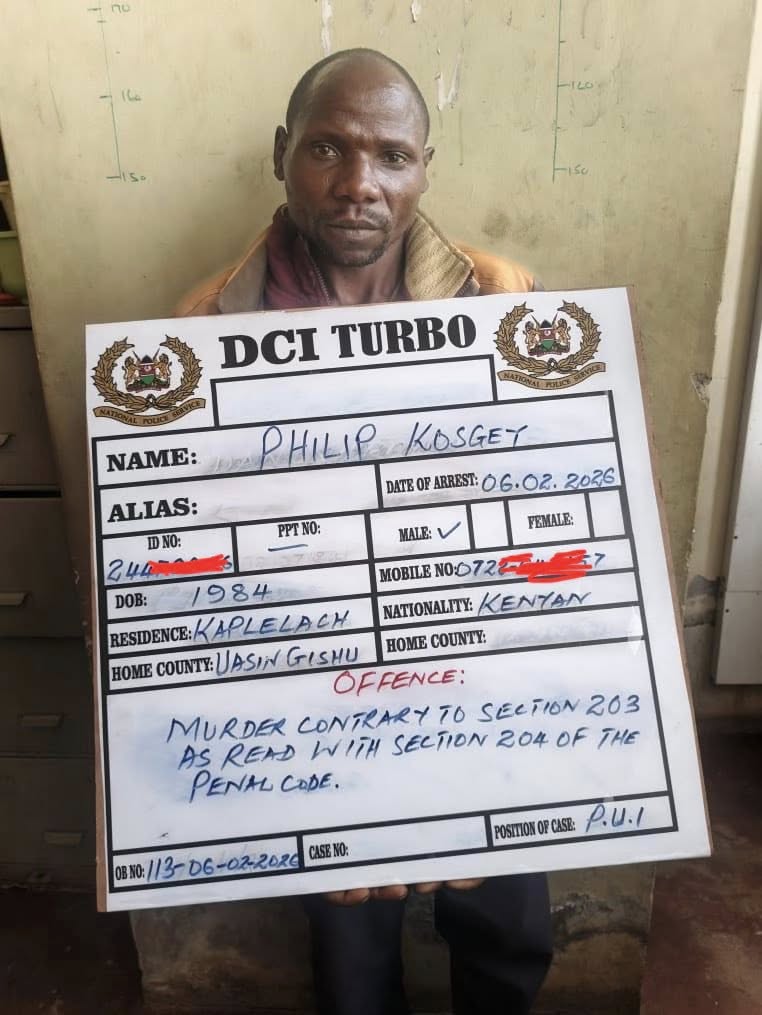 170
160
150
160
150
DCI TURBO
NATIONAL POLICE SERVICE
NATIONAL POLICE SERVICE
NAME: PHILIP KOSGEY
ALIAS:
DATE OF ARREST: 06.02.2026
ID NO:
PPT NO: —
MALE: ✓
FEMALE:
MOBILE NO:
DOB: 1984
NATIONALITY: KENYAN
RESIDENCE: KAPLELACH
HOME COUNTY: UASIN GISHU
HOME COUNTY:
OFFENCE:
MURDER CONTRARY TO SECTION 203
AS READ WITH SECTION 204 OF THE
PENAL CODE.
OB NO: 113-06-02-2026
CASE NO:
POSITION OF CASE: P.U.I